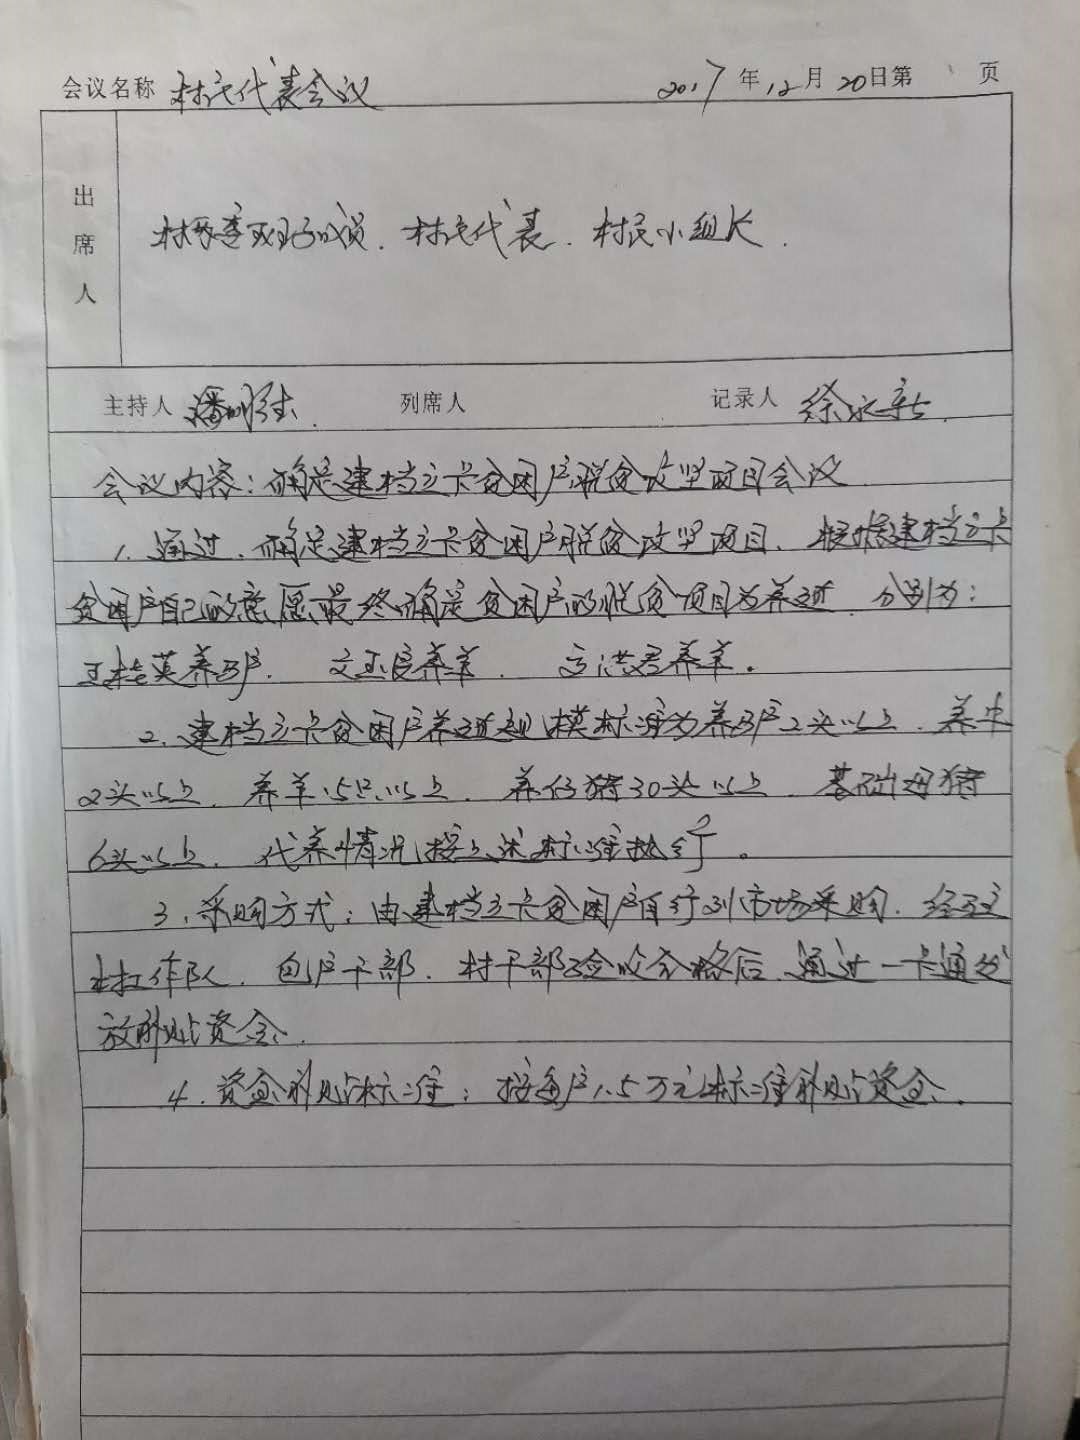 会议名称 村民代表会议 2017年12月20日第1页
出席人
村两委班子成员、村民代表、村民小组长.
主持人 潘明 列席人 记录人 徐永新
会议内容：确定建档立卡贫困户脱贫攻坚项目会议
1、通过、确定建档立卡贫困户脱贫攻坚项目、根据建档立卡
贫困户自己的意愿最终确定贫困户的脱贫项目为养殖、分别为：
王桂英养驴、文玉良养羊、 洪君养羊。
2、建档立卡贫困户养殖规模标准为养驴2头以上、养牛
2头以上、养羊15只以上、养仔猪30头以上、基础母猪
6头以上、代养情况按上述标准执行。
3、采购方式：由建档立卡贫困户自行到市场采购、经驻
村工作队、包户干部、村干部验收合格后、通过一卡通发
放补贴资金、
4、资金补贴标准：按每户1.5万元标准补贴资金、